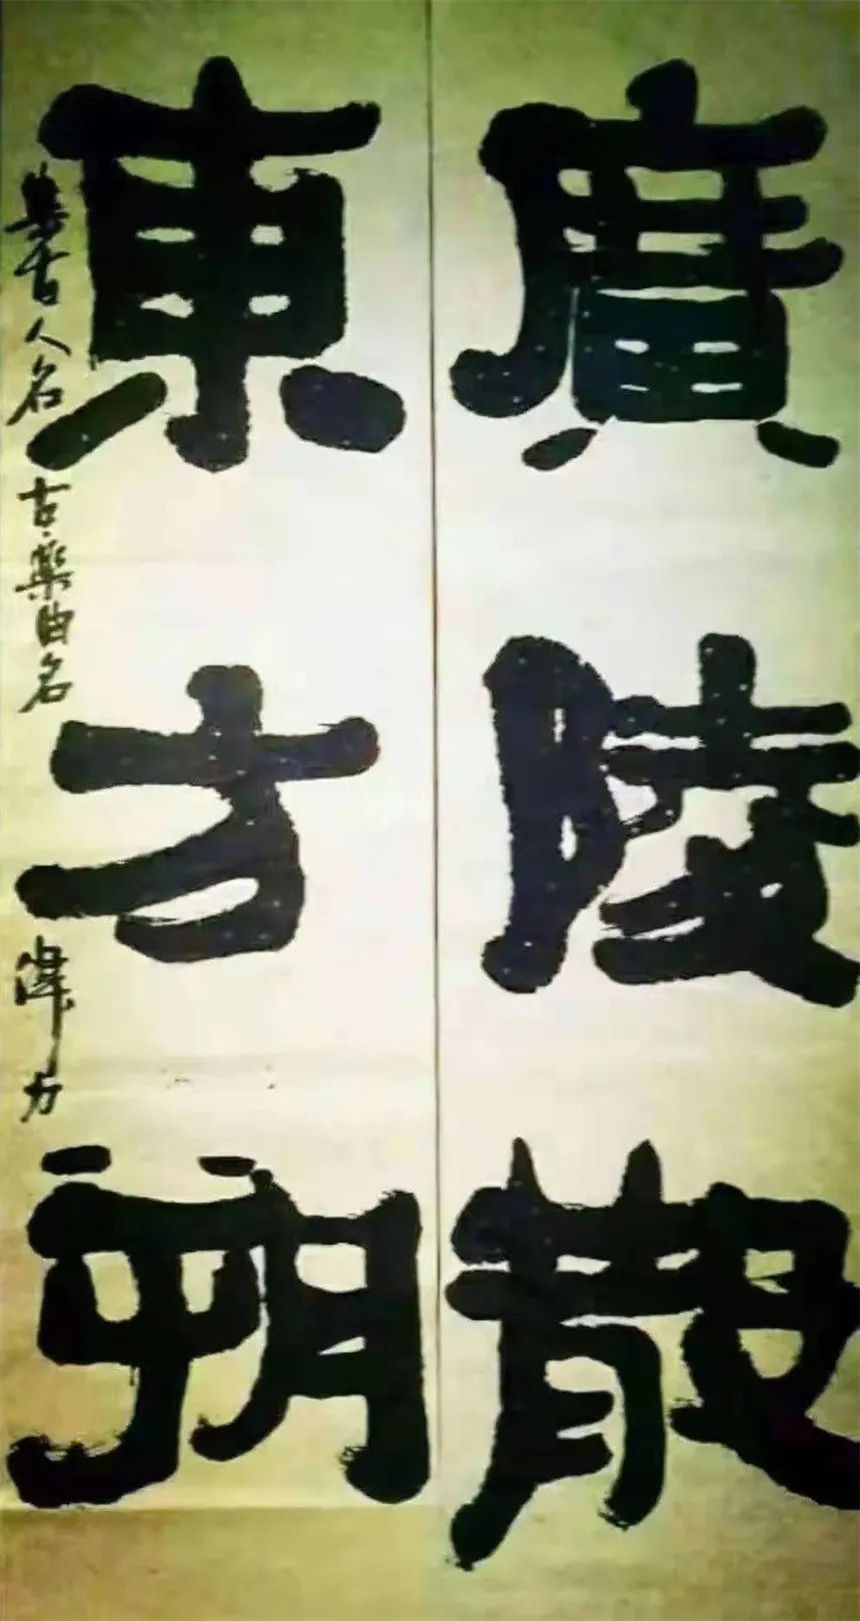 廣陵散
東方朔
集古人名古樂曲名
偉力